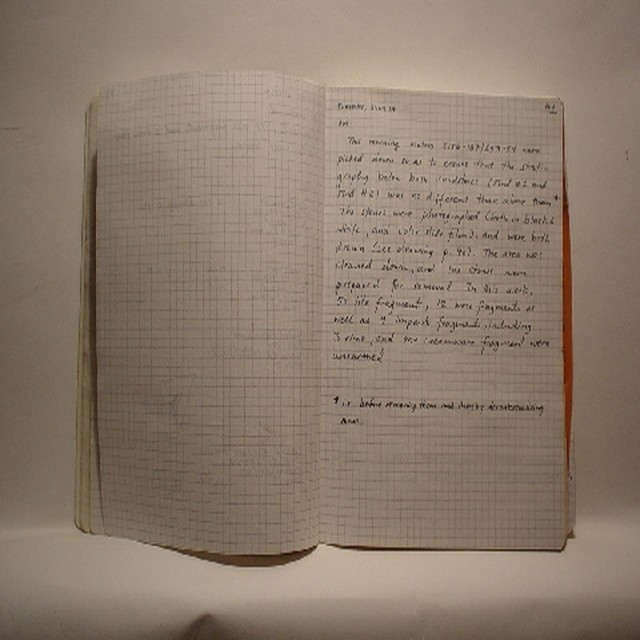 AM
This morning meters 5156-157/653-54 were
picked down so as to ensure that the strati-
graphy below both limestones (find #1 and
find #2) was no different than above them*.
The stones were photographed (both in black &
white, and color slide film), and were both
drawn (see drawing p. 40). The area was
cleaned down, and the stones were
prepared for removal. In this work,
tile fragment, 12 ware fragments as
well as fragments, including
3 rims, and one fragment were
unearthed.
* i.e. before removing them and thereby decontextualizing
them.